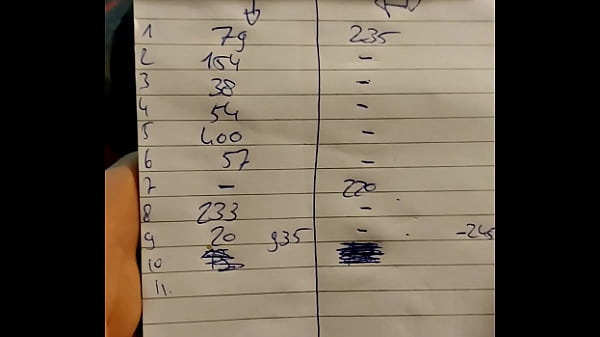 1 79 235
2 154 -
3 38 -
4 54 -
5 400 -
6 57 -
7 - 220
8 233 -
9 20 935 - -245
10
11.